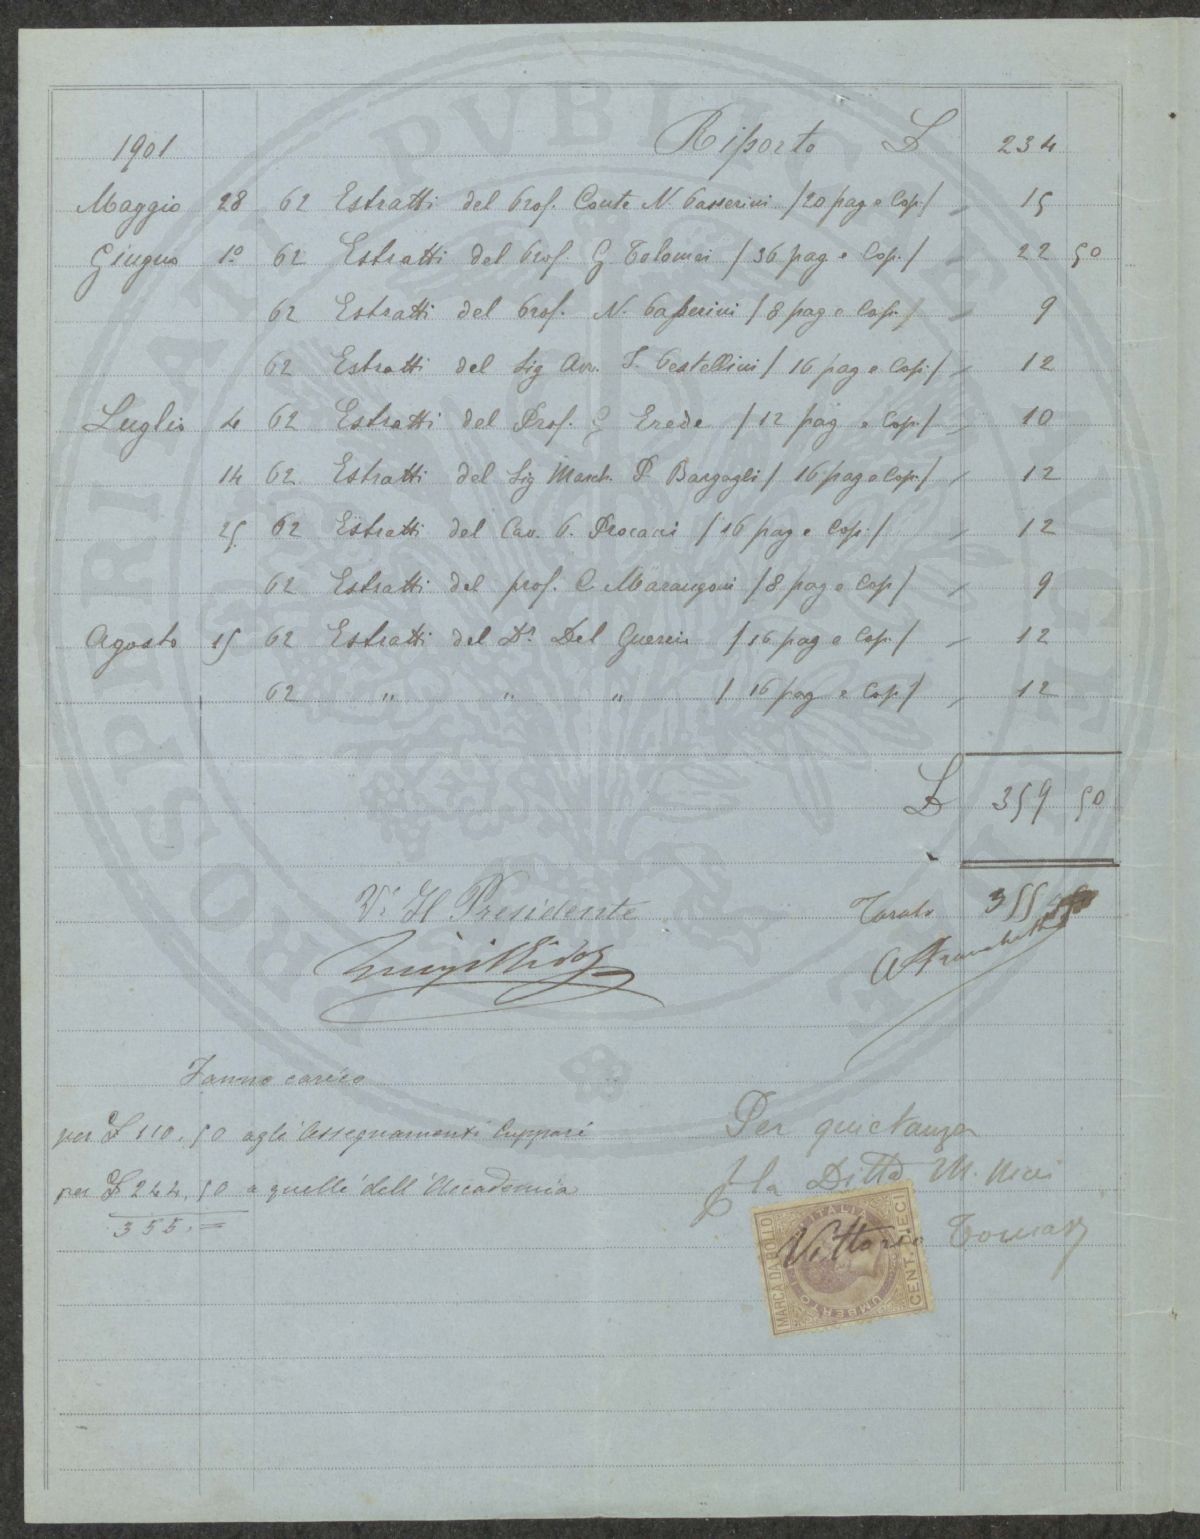 1901 Riporto L 234
Maggio 28 62 Estratti del Prof. Conte N. Passerini /20 pag e Cop./ " 15
Giugno 1° 62 Estratti del Prof. G Tolomei / 36 pag e Cop./ " 22 50
62 Estratti del Prof. N. Passerini / 8 pag e Cop./ " 9
62 Estratti del Sig Avv. T. Pestellini / 16 pag e Cop./ " 12
Luglio 4 62 Estratti del Prof. G Erede / 12 pag e Cop./ " 10
14 62 Estratti del Sig March. P Bargagli / 16 pag e Cop./ " 12
25 62 Estratti del Cav. P. Procacci / 16 pag e Cop./ " 12
62 Estratti del prof. C. Marangoni / 8 pag e Cop/ " 9
Agosto 15 62 Estratti del Dr Del Guercio / 16 pag e Cop./ " 12
62 " " " / 16 pag e Cop./ " 12
L 359 50
V° Il Presidente Tarato 355
Luigi
Fanno carico
per L 110,50 agli Assegnamenti Cuppari
per L 244,50 a quelli dell'Accademia
355.=
Per quietanza
p la Ditta M. Ricci
Vittorio
MARCA DA BOLLO
D'ITALIA
UMBERTO I
CENT. DIECI
PROSPERITATI PVBLICAE AVGENDAE